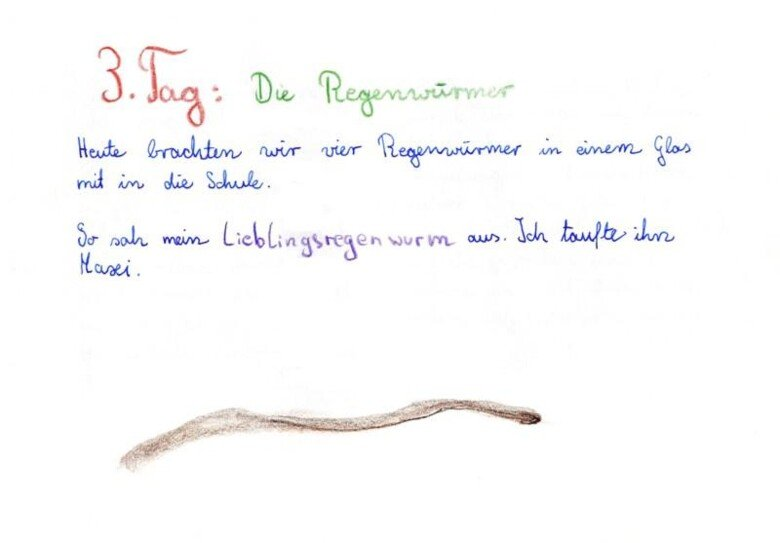 3. Tag: Die Regenwürmer
Heute brachten wir vier Regenwürmer in einem Glas
mit in die Schule.
So sah mein Lieblingsregenwurm aus. Ich taufte ihn
Maxi.